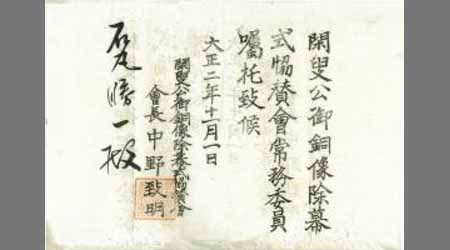 閑叟公御銅像除幕
式協賛會常務委員
囑托致候
大正二年十一月一日
閑叟公御銅像除幕式協賛會
會長中野致明
石丸勝一殿